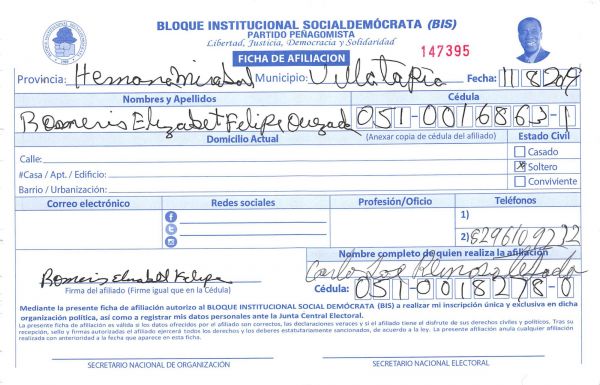 BLOQUE INSTITUCIONAL SOCIALDEMÓCRATA (BIS)
PARTIDO PEÑAGOMISTA
Libertad, Justicia, Democracia y Solidaridad
FICHA DE AFILIACION
147395
Provincia: Hermana Mirabal Municipio: Villa Tapia Fecha: 11 8 2019
Nombres y Apellidos Cédula
Romeris Elizabet Felipe Quezada 051-0016863-1
Domicilio Actual (Anexar copia de cédula del afiliado) Estado Civil
Calle: Casado
#Casa / Apt. / Edificio: x Soltero
Barrio / Urbanización: Conviviente
Correo electrónico Redes sociales Profesión/Oficio Teléfonos
1)
2) 8296109232
Nombre completo de quien realiza la afiliación
Romeris Elizabet Felipe Carlos José
Firma del afiliado (Firme igual que en la Cédula) Cédula: 051-0018278-0
Mediante la presente ficha de afiliación autorizo al BLOQUE INSTITUCIONAL SOCIAL DEMÓCRATA (BIS) a realizar mi inscripción única y exclusiva en dicha
organización política, así como a registrar mis datos personales ante la Junta Central Electoral.
La presente ficha de afiliación es válida si los datos ofrecidos por el afiliado son correctos, las declaraciones veraces y si el afiliado tiene el disfrute de sus derechos civiles y políticos. Tras su
recepción, sello y firmas autorizadas el afiliado ejercerá todos los derechos y los deberes estatutariamente sancionados, de acuerdo a la ley. La presente afiliación anula cualquier afiliación
realizada con anterioridad a la fecha que aparece en esta ficha.
SECRETARIO NACIONAL DE ORGANIZACIÓN SECRETARIO NACIONAL ELECTORAL